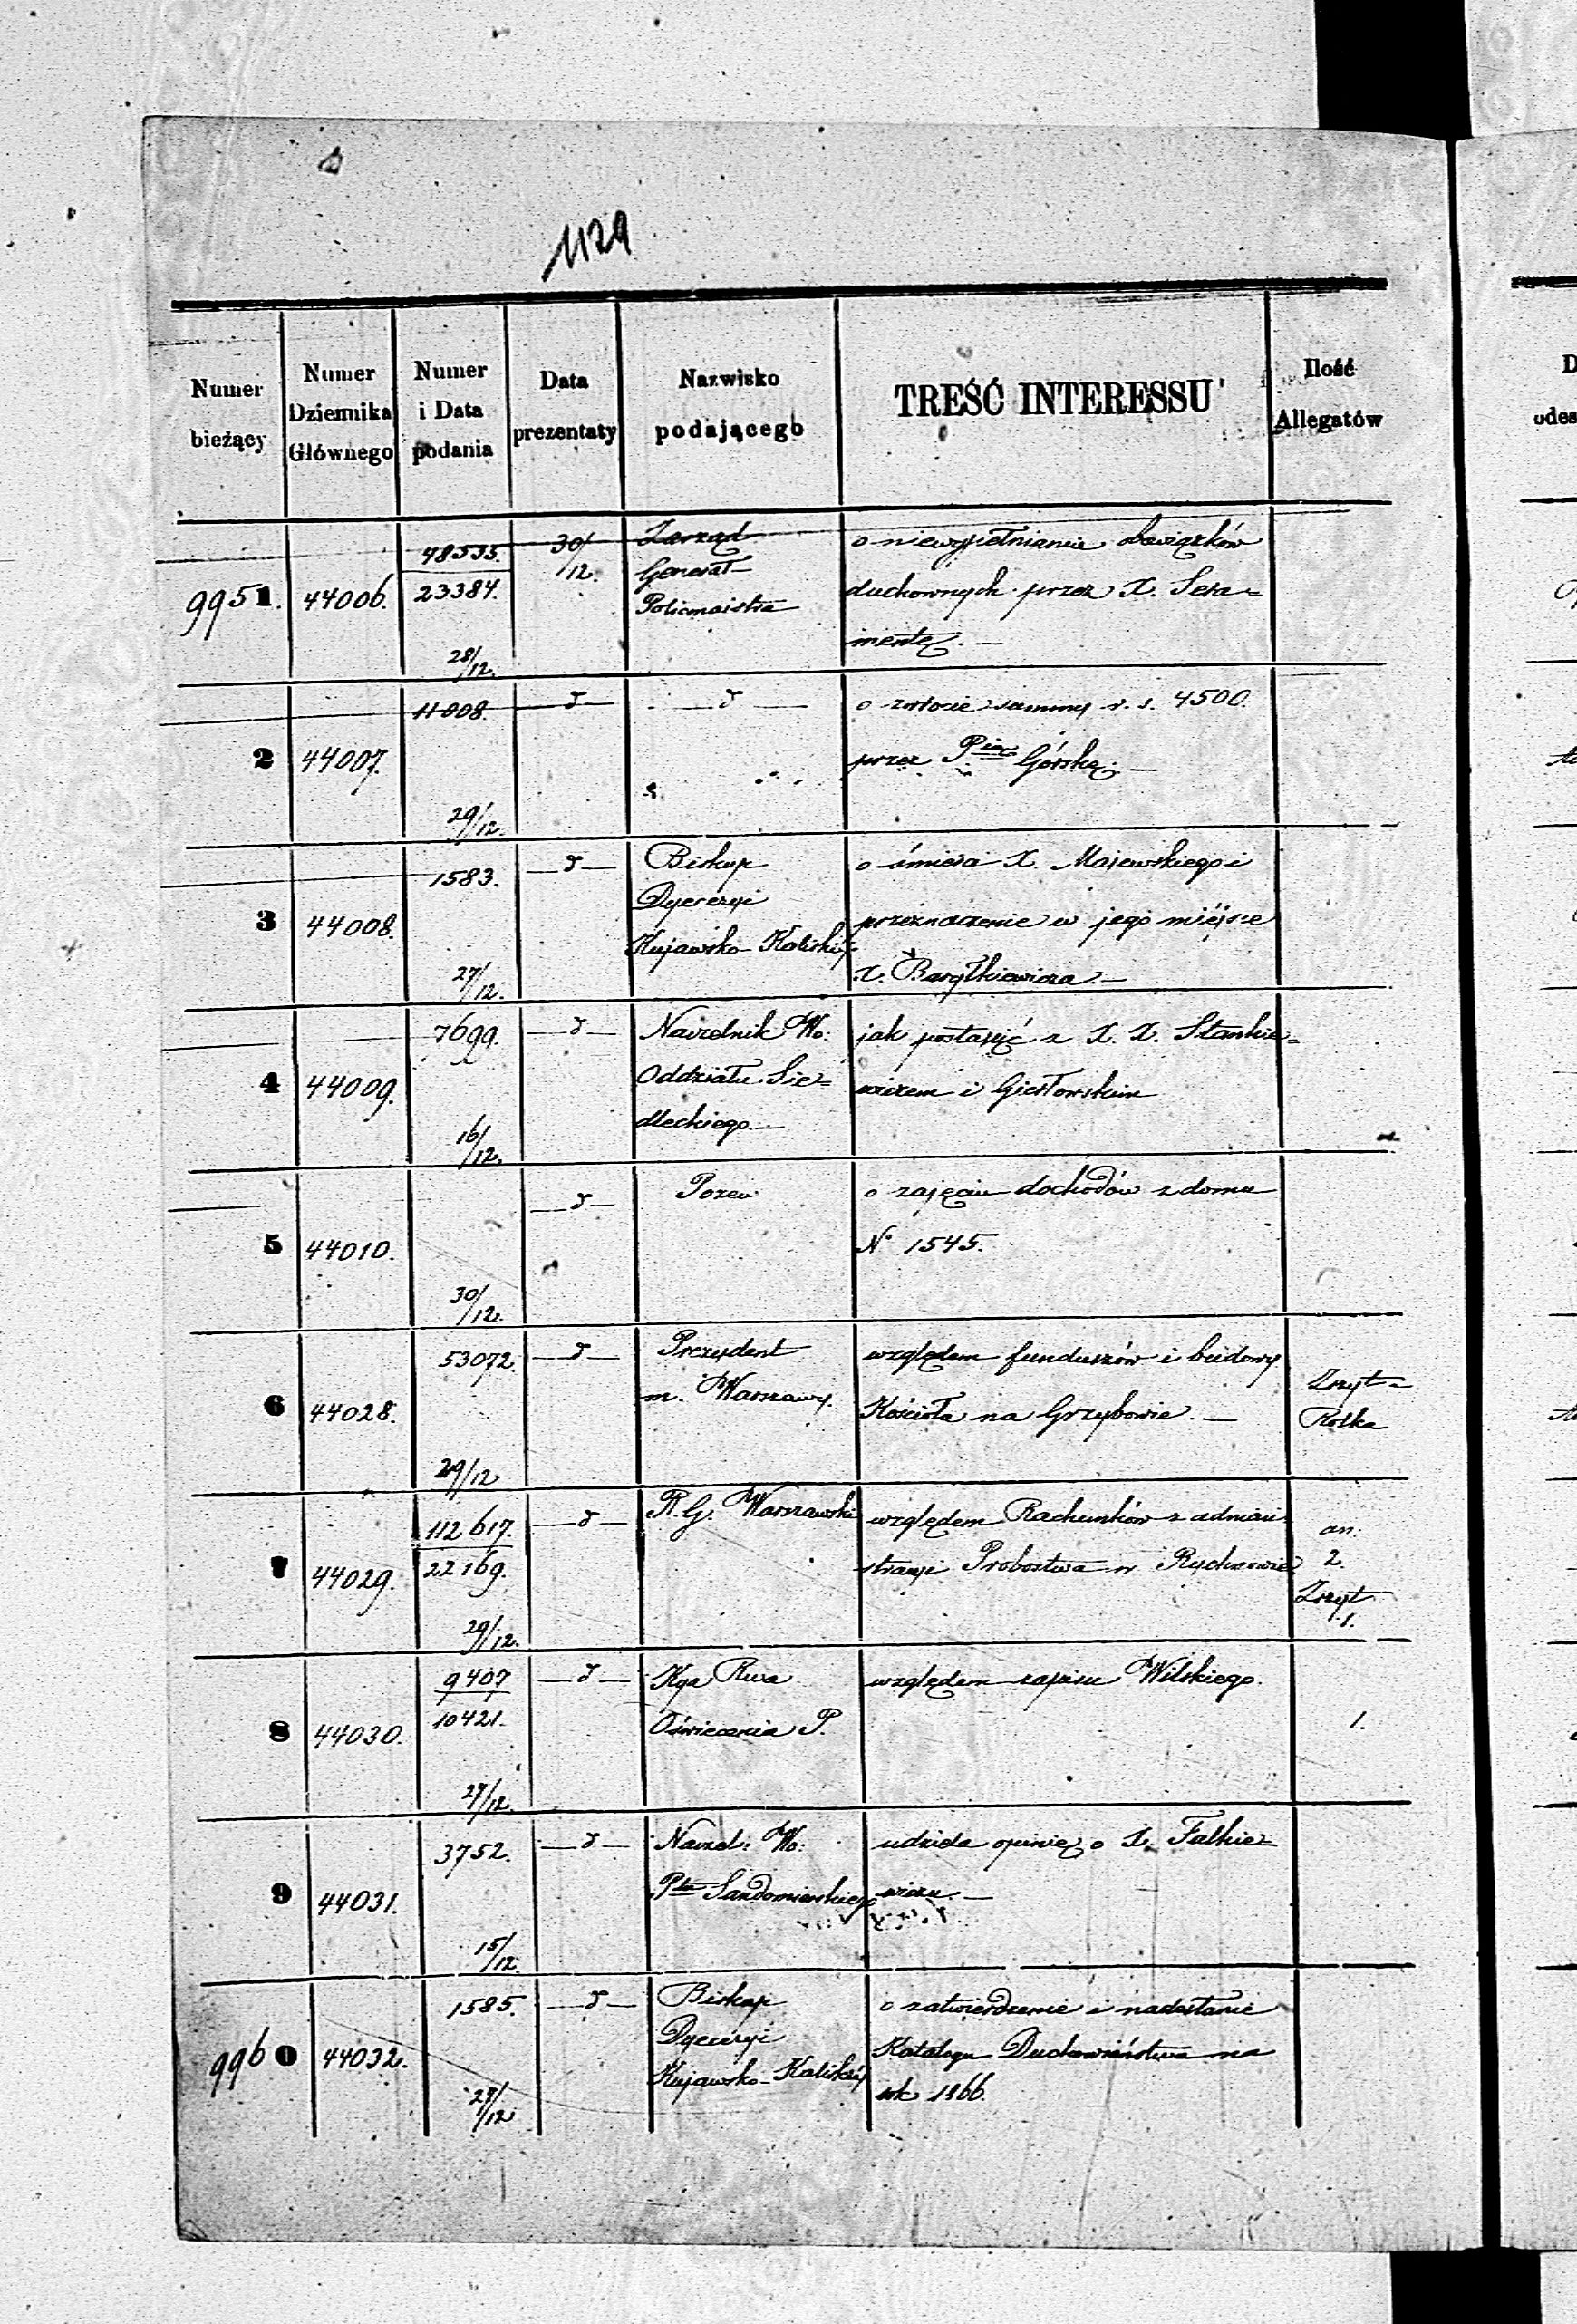 1129
Numer bieżący
Numer Dziennika Głównego
Numer i Data podania
Data prezentaty
Nazwisko podającego
TREŚĆ INTERESSU
Ilość Allegatów
9951. 44006. 48535. 30/12. Zarząd o niewypełnianie obowiązków
23384. Generał duchownych przez X.
Policmajstra
28/12.
2 44007. 11008. d d o zwrocie summy r. s. 4500.
przez Górską. —
29/12.
3 44008. 1583. d Biskup o śmierci X. Majewskiego i
Dyecezyi przeznaczenie w jego miéjsce
Kujawsko-Kaliskiéj X. Baryłkiewicza. —
27/12.
4 44009. 7699. d Naczelnik Wo: jak postąpić z X. X. Stankie=
Oddziału Sie= wiczem i
dleckiego. —
16/12.
5 44010. d Pozew o zajęciu dochodów z domu
N° 1545.
30/12.
6 44028. 53072. d Prezydent względem funduszów i budowy Zszyt
m. Warszawy. Kościoła na Grzybowie. — Rolka
29/12
7 44029. 112617. d R. G. Warszawski względem Rachunków z admini an:
22169. stracyi Probostwa w 2.
Zszyt
29/12. 1.
8 44030. 9407 d Kya Rwa względem zapisu Wilskiego.
10421. Oświecenia P. 1.
27/12.
9 44031. 3752. d Naczel: Wo: udziela opinię o X. Falkie=
Ptu Sandomierskiego wiczu. —
15/12.
9960 44032. 1585. d Biskup o zatwierdzenie i nadesłanie
Dyecezyi Katalogu Duchowieństwa na
Kujawsko-Kaliskiéj rok 1866.
27/12